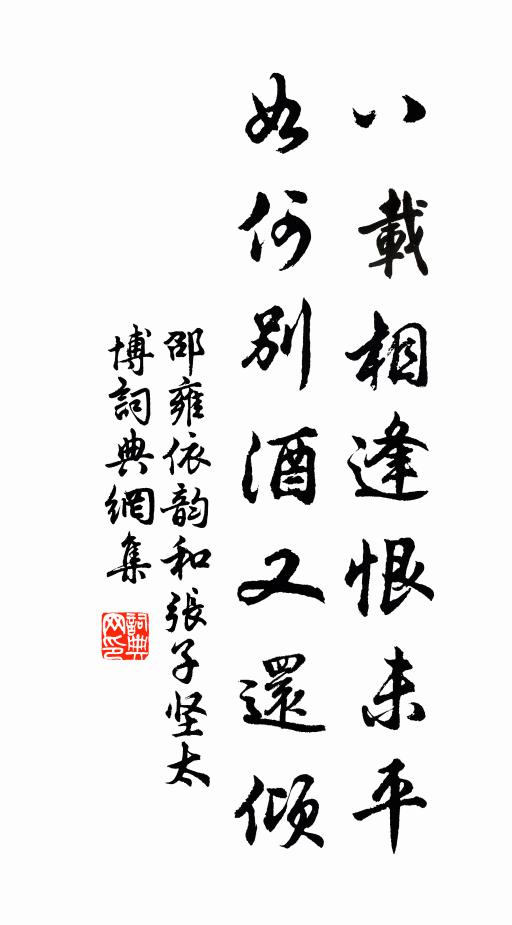 八載相逢恨未平
如何別酒又還傾
邵雍依韵和張子坚太
博詞典網集
詞典
网印